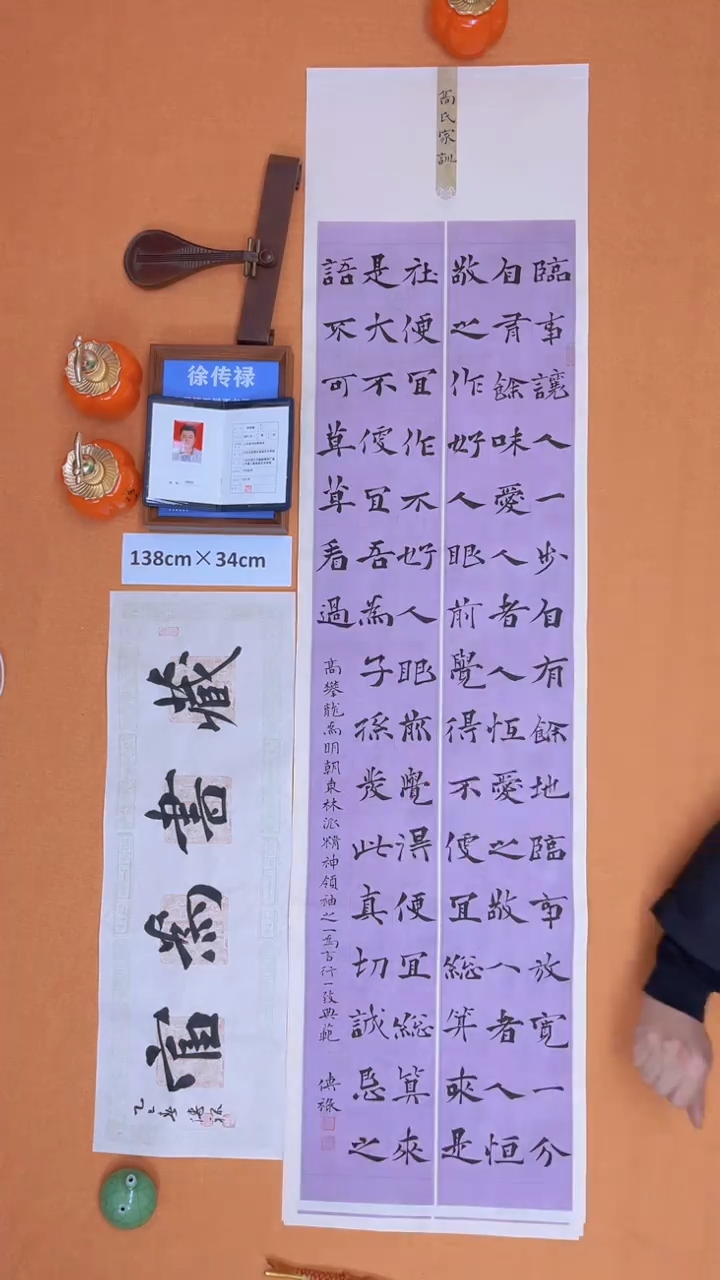 高氏家訓
臨事讓人一步自有餘地臨事放寬一分
自有餘味愛人者人恒愛之敬人者人恒
敬之作好人眼前覺得不便宜總算來是
社便宜作不好人眼前覺得便宜總算來
是大不便宜吾為子孫發此真切誠忌之
語不可草草看過
高攀龍為明朝東林派精神領袖之一為言行一致典範
傳祿
徐传禄
138cm×34cm
藏書為富
乙巳春傳祿